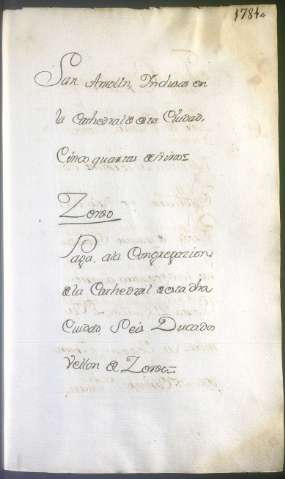 1784.
San Antolin, Yndusas en
la Cathedral de esta Ciudad,
Cinco quartas de
Zenso
Paga, a la Congregazion
de la Cathedral de esta dha
Ciudad Seis Ducados
Vellon de Zenso=